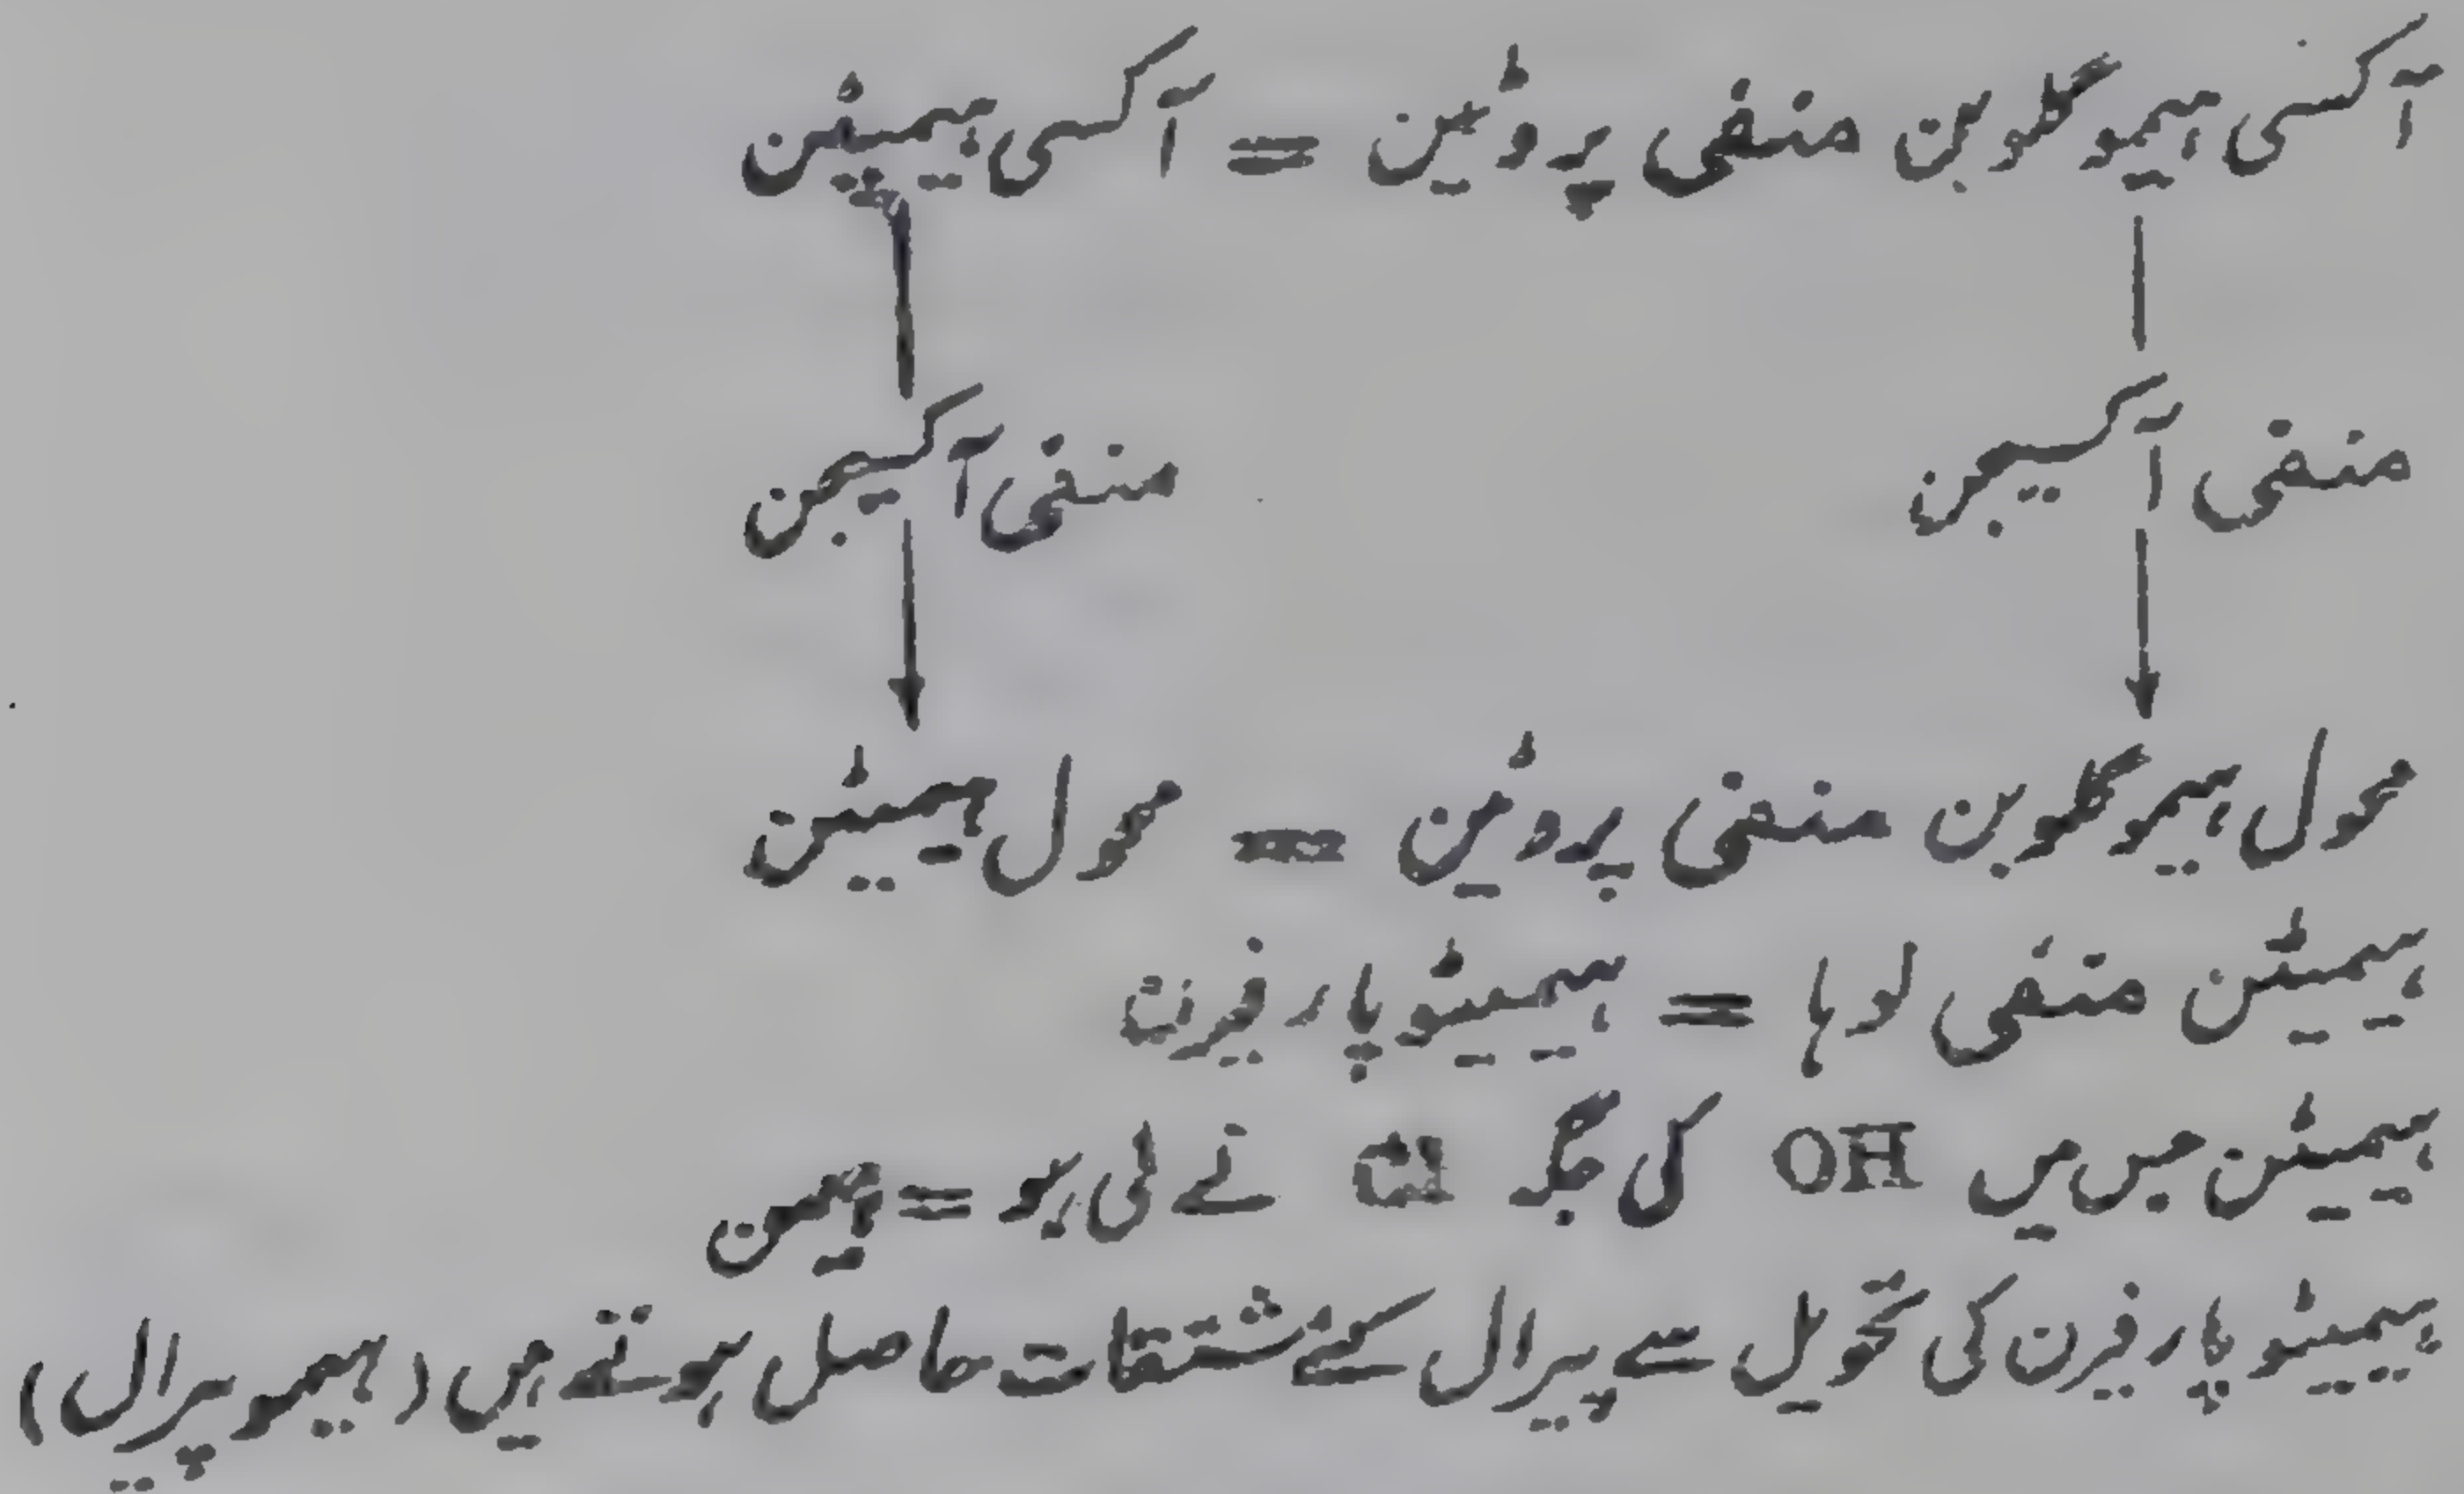 آکسی ہیموگلوبن منفی پروٹین = آکسی ہیمیٹن
منفی آکسیجن منفی آکسیجن
محول ہیموگلوبن منفی پروٹین = محول ہیمیٹن
ہیمیٹن منفی لوہا = ہیمیٹوپارفرن
ہیمیٹن میں OH کی جگہ Cl نے لی ہو = ہیمن
ہیمیٹوپارفرن کی تحویل سے پیرال کے مشتقات حاصل ہوتے ہیں (ہیموپیرال)